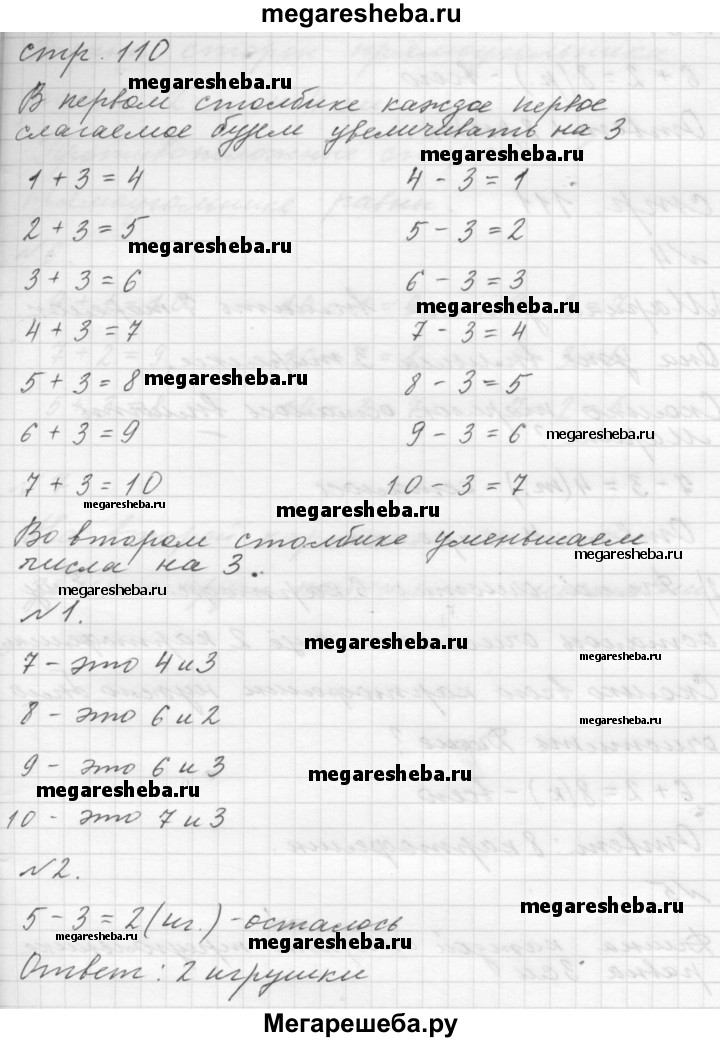 megaresheba.ru
стр. 110
megaresheba.ru
В первом столбике каждое первое
слагаемое будем увеличивать на 3
megaresheba.ru
1 + 3 = 4 4 - 3 = 1
2 + 3 = 5 5 - 3 = 2
megaresheba.ru
3 + 3 = 6 6 - 3 = 3
megaresheba.ru
4 + 3 = 7 7 - 3 = 4
5 + 3 = 8 megaresheba.ru 8 - 3 = 5
6 + 3 = 9 9 - 3 = 6 megaresheba.ru
7 + 3 = 10 10 - 3 = 7
megaresheba.ru megaresheba.ru
Во втором столбике уменьшаем
megaresheba.ru
числа на 3.
megaresheba.ru
№1.
megaresheba.ru
7 - это 4 и 3 megaresheba.ru
8 - это 6 и 2 megaresheba.ru
9 - это 6 и 3 megaresheba.ru
megaresheba.ru
10 - это 7 и 3
№2.
megaresheba.ru
5 - 3 = 2 (иг.) - осталось
megaresheba.ru megaresheba.ru
Ответ: 2 игрушки
Мегарешеба.ру